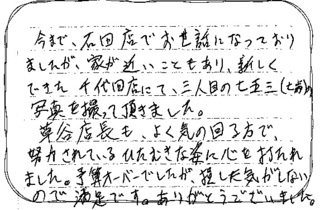 今まで、石田店でお世話になっており
ましたが、家が近いこともあり、新しく
できた千代田店にて、三人目の七五三(七才)の
写真を撮って頂きました。
草谷店長も、よく気の回る方で、
努力されているひたむきな姿に心を打たれ
ました。予算オーバーでしたが、損した気がしない
ので満足です。ありがとうございました。